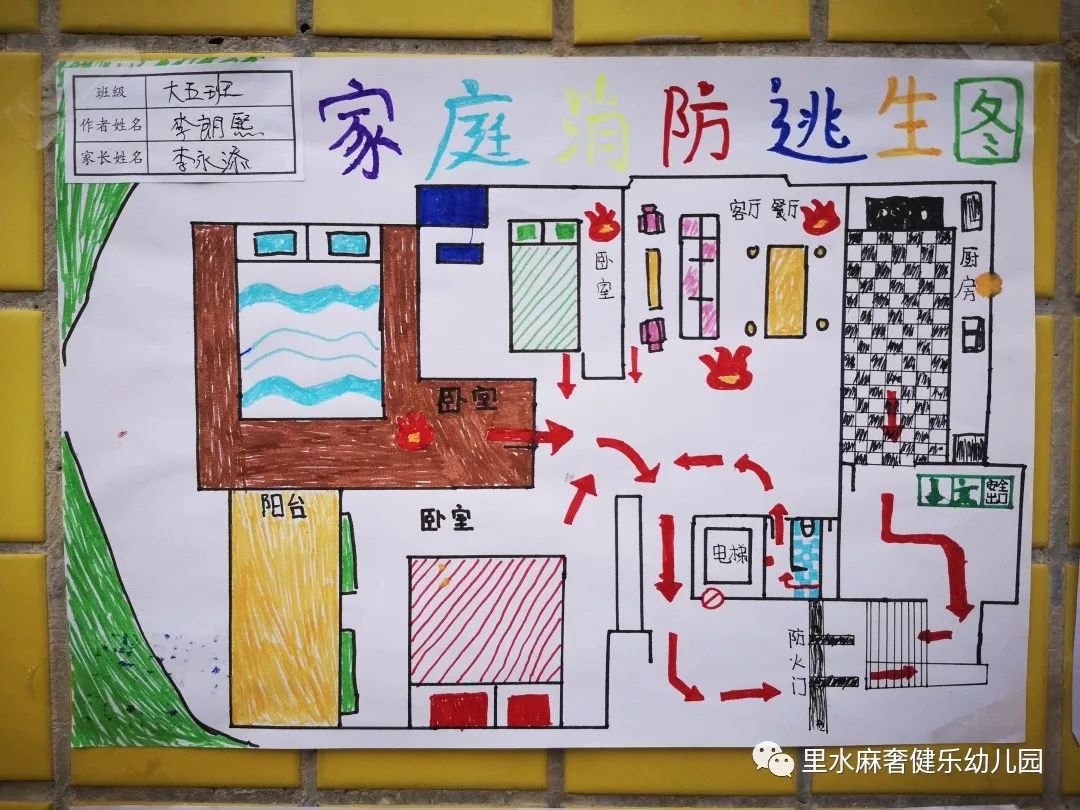 家庭消防逃生图
班级 大五班
作者姓名 李朗熙
家长姓名 李永添
客厅 餐厅
卧室
厨房
卧室
阳台
卧室
安全出口
电梯
防火门
里水麻奢健乐幼儿园